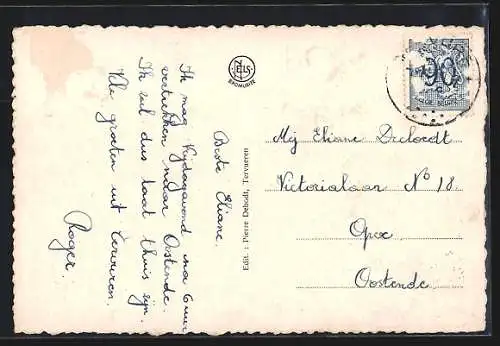 Beste Eliane.
Ik mag Vrijdagavond na 6 uur
vertrekken naar Oostende.
Ik zul dus laat thuis zijn.
Vele groeten uit Tervuren.
Roger.
NELS
BROMURITE
Edit. : Pierre Debodt, Tervueren
90
Mej Eliane
Victorialaan Nº 18.
Opex
Oostende